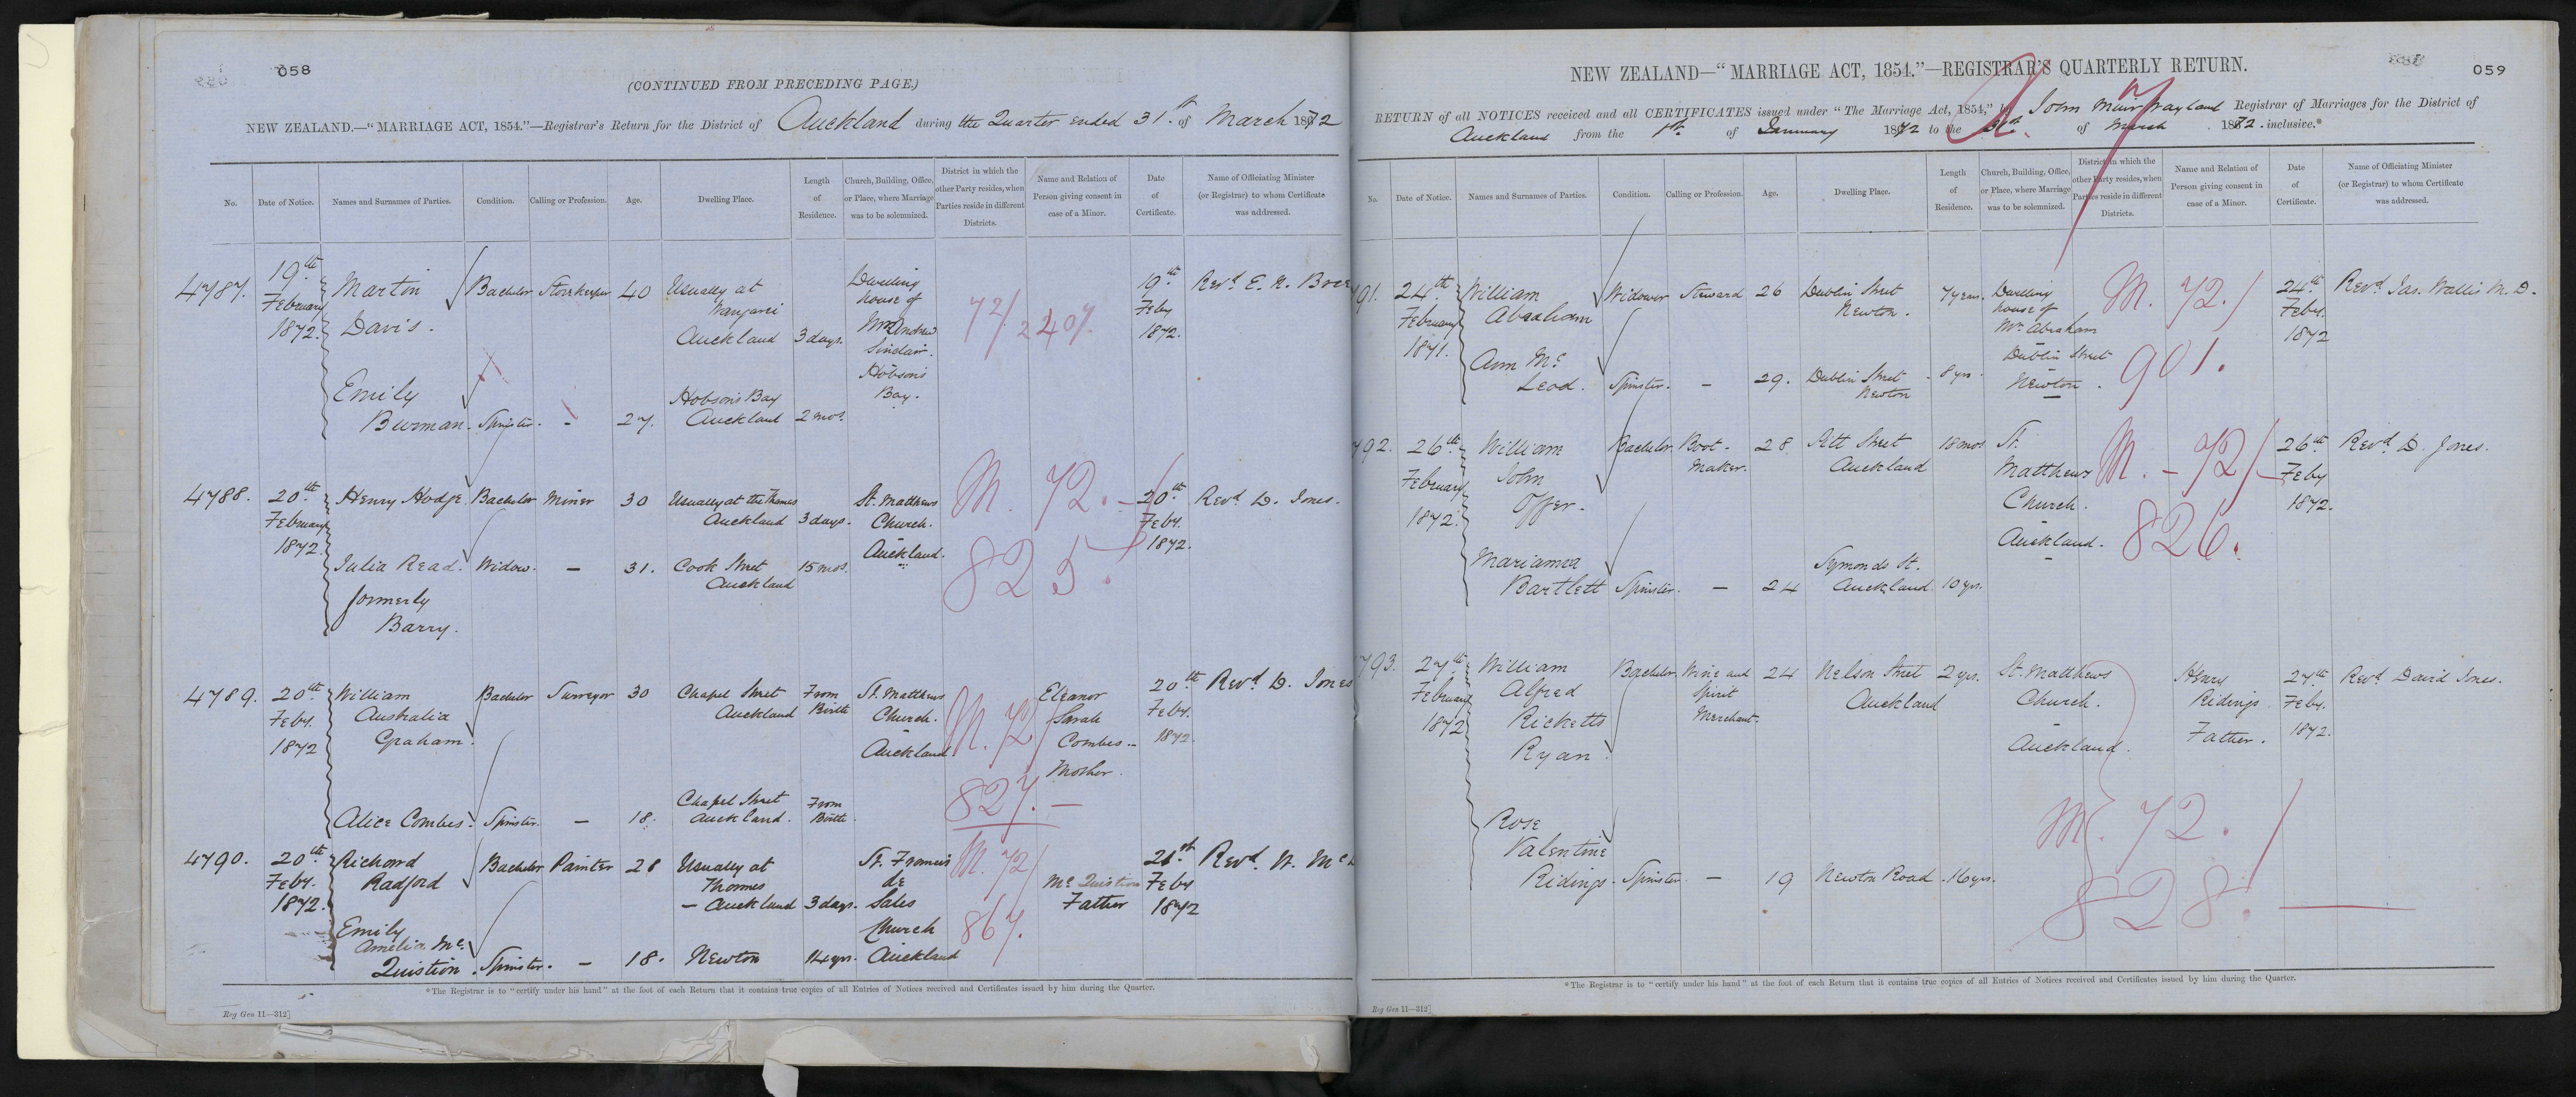 058
(CONTINUED FROM PRECEDING PAGE.)
NEW ZEALAND.—"MARRIAGE ACT, 1854."—Registrar's Return for the District of Auckland during the Quarter ended 31st of March 1872
No. Date of Notice. Names and Surnames of Parties. Condition. Calling or Profession. Age. Dwelling Place. Length of Residence. Church, Building, Office, or Place, where Marriage was to be solemnized. District in which the other Party resides, when Parties reside in different Districts. Name and Relation of Person giving consent in case of a Minor. Date of Certificate. Name of Officiating Minister (or Registrar) to whom Certificate was addressed.
4787. 19th February 1872. Martin Davis. Bachelor Storekeeper 40 Usually at Auckland 3 days. Dwelling house of Andrew Sinclair. Hobson's Bay. 72/2407. 19th Feby 1872. Revd. E. N.
Emily Burman. Spinster. - 27. Hobson's Bay Auckland 2 mos.
4788. 20th February 1872. Henry Hodge. Bachelor Miner 30 Usually at the Thames Auckland 3 days. St. Matthews Church. Auckland. M. 72. 825. 20th Feby. 1872. Revd. D. Jones.
Julia Read. formerly Barry. Widow. - 31. Cook Street Auckland 15 mos.
4789. 20th Feby. 1872 William Australia Graham. Bachelor Surveyor 30 Chapel Street Auckland From Birth St. Matthews Church. Auckland. M. 72/827. Eleanor Sarah Combes - Mother. 20th Feby. 1872. Revd. D. Jones
Alice Combes. Spinster. - 18. Chapel Street Auckland. From Birth.
4790. 20th Feby. 1872. Richard Radford Bachelor Painter 28 Usually at Thames - Auckland 3 days. St. Francis de Sales Church Auckland M. 72/867. Mc Quistion Father 21st Feby 1872 Revd. W. Mc
Emily Amelia Mc. Quistion. Spinster. - 18. Newton 14 yrs.
*The Registrar is to "certify under his hand" at the foot of each Return that it contains true copies of all Entries of Notices received and Certificates issued by him during the Quarter.
Reg Gen 11—312]
059
NEW ZEALAND—"MARRIAGE ACT, 1854."—REGISTRAR'S QUARTERLY RETURN.
RETURN of all NOTICES received and all CERTIFICATES issued under "The Marriage Act, 1854," by John Muir Wayland Registrar of Marriages for the District of
Auckland from the 1st. of January 1872 to the 31st. of March 1872. inclusive.*
No. Date of Notice. Names and Surnames of Parties. Condition. Calling or Profession. Age. Dwelling Place. Length of Residence. Church, Building, Office, or Place, where Marriage was to be solemnized. District in which the other Party resides, when Parties reside in different Districts. Name and Relation of Person giving consent in case of a Minor. Date of Certificate. Name of Officiating Minister (or Registrar) to whom Certificate was addressed.
91. 24th. February 1871. William Abraham Widower Steward 26 Dublin Street Newton. 7 years. Dwelling house of Mr. Abraham Dublin Street Newton. M. 72/901. 24th. Feby. 1872 Revd. Jas. Wallis M. D.
Ann Mc Leod. Spinster. - 29. Dublin Street Newton 8 yrs.
792. 26th February 1872. William John Offer. Bachelor. Boot-maker. 28. Pitt Street Auckland 18 mos St. Matthews Church. Auckland. M. - 72/826. 26th Feby 1872. Revd. D. Jones.
Marianna Bartlett Spinster. - 24 Symonds St. Auckland. 10 yrs.
793. 27th February 1872 William Alfred Ricketts Ryan. Bachelor Wine and Spirit Merchant. 24 Nelson Street Auckland 2 yrs. St. Matthews Church. Auckland. M. 72./828. Henry Ridings Father. 27th Feby. 1872. Revd. David Jones.
Rose Valentine Ridings. Spinster. - 19 Newton Road. 16 yrs.
*The Registrar is to "certify under his hand" at the foot of each Return that it contains true copies of all Entries of Notices received and Certificates issued by him during the Quarter.
Reg Gen 11—312]